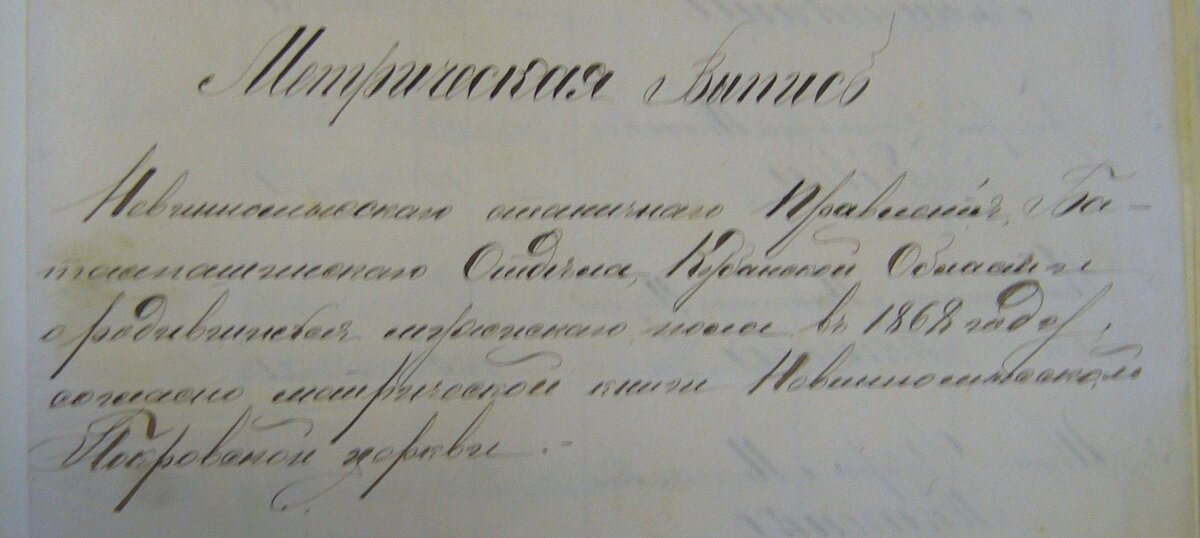 Метрическая Выпись
Невинномысскаго станичнаго Правленія, Ба-
талпашинскаго Отдѣла, Кубанской Области
о родившихся мужскаго пола въ 1868 году,
согласно метрической книги Невинномысской
Покровской церкви.-